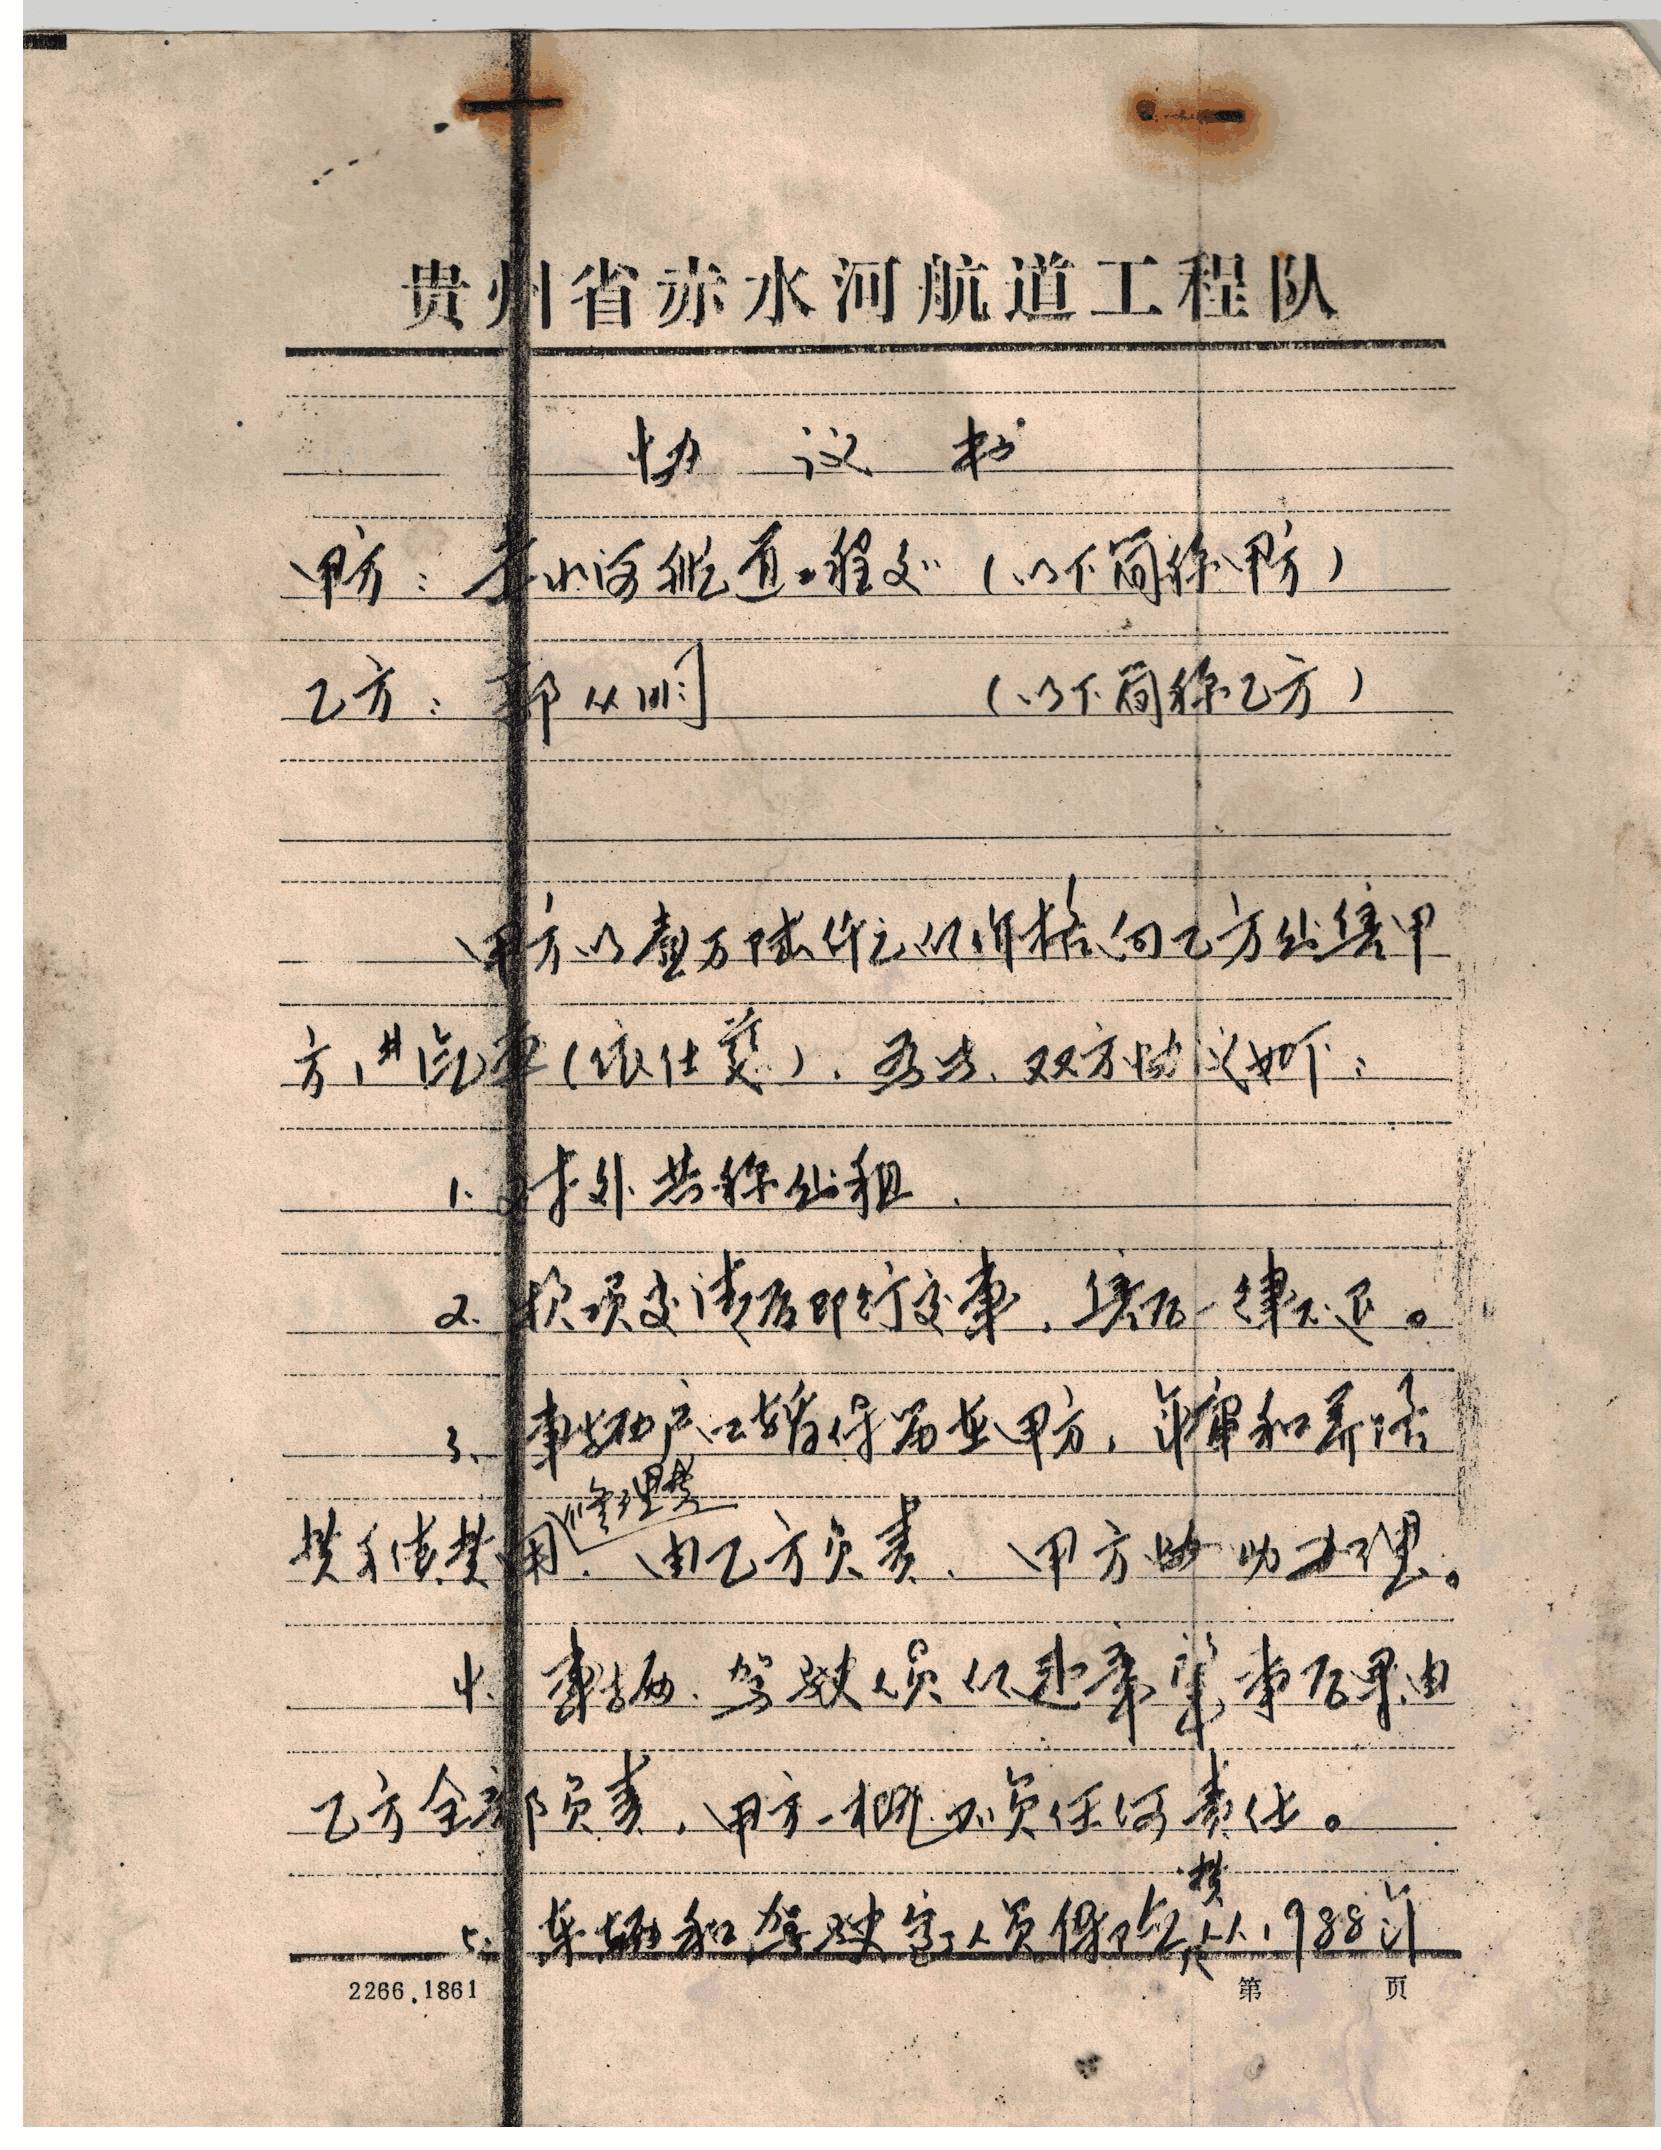 贵州省赤水河航道工程队
协议书
甲方：赤水河航道工程处（以下简称甲方）
乙方：郭从明（以下简称乙方）
甲方以壹万陆仟元的价格向乙方出售甲
方旧汽车（依仕兹）．为此．双方协议如下：
1．对外共称出租．
2．款项交清后即行交车，售后一律不退。
3．车辆户口暂保留在甲方，年审和养路
费保养费用修理费．由乙方负责．甲方协助办理。
4．车辆．驾驶人员的违章肇事后果由
乙方全部负责，甲方一概不负任何责任。
5．车辆和驾驶室人员保险费从1988年
2266.1861
第 页